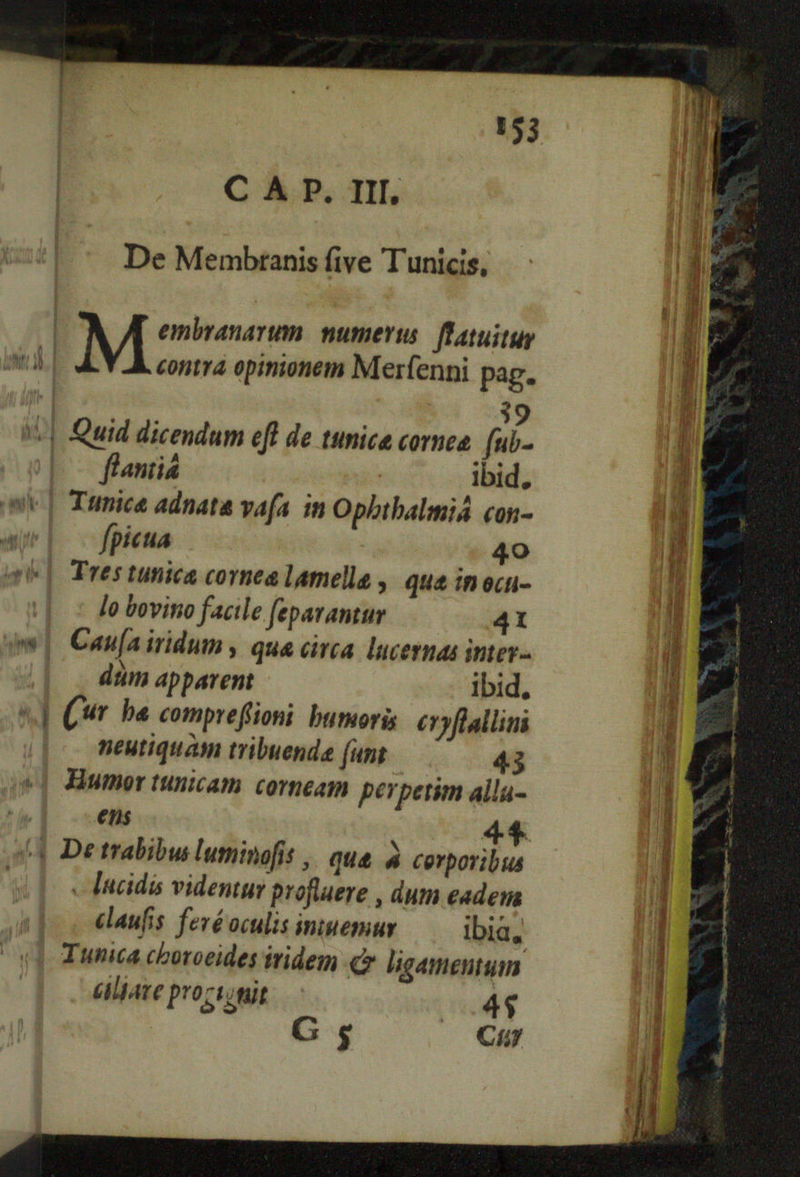 153
CAP. III.
De Membranis ſive Tunicis.
Membranarum numerus ſtatuitur
contra opinionem Merſenni pag.
39
Quid dicendum eſt de tunicæ corneæ ſub-
ſtantiâ ibid.
Tunicæ adnatæ vaſa in Ophthalmiâ con-
ſpicua 40
Tres tunicæ corneæ lamellæ, quæ in ocu-
lo bovino facile ſeparantur 41
Cauſa iridum, quæ circa lucernas inter-
dùm apparent ibid.
Cur hæ compreſſioni humoris cryſtallini
neutiquàm tribuendæ ſunt 43
Humor tunicam corneam perpetim allu-
ens 44
De trabibus luminoſis, quæ à corporibus
lucidis videntur profluere, dum eadem
clauſis ferè oculis intuemur ibid.
Tunica choroeides iridem & ligamentum
ciliare progignit 45
G 5 Cur